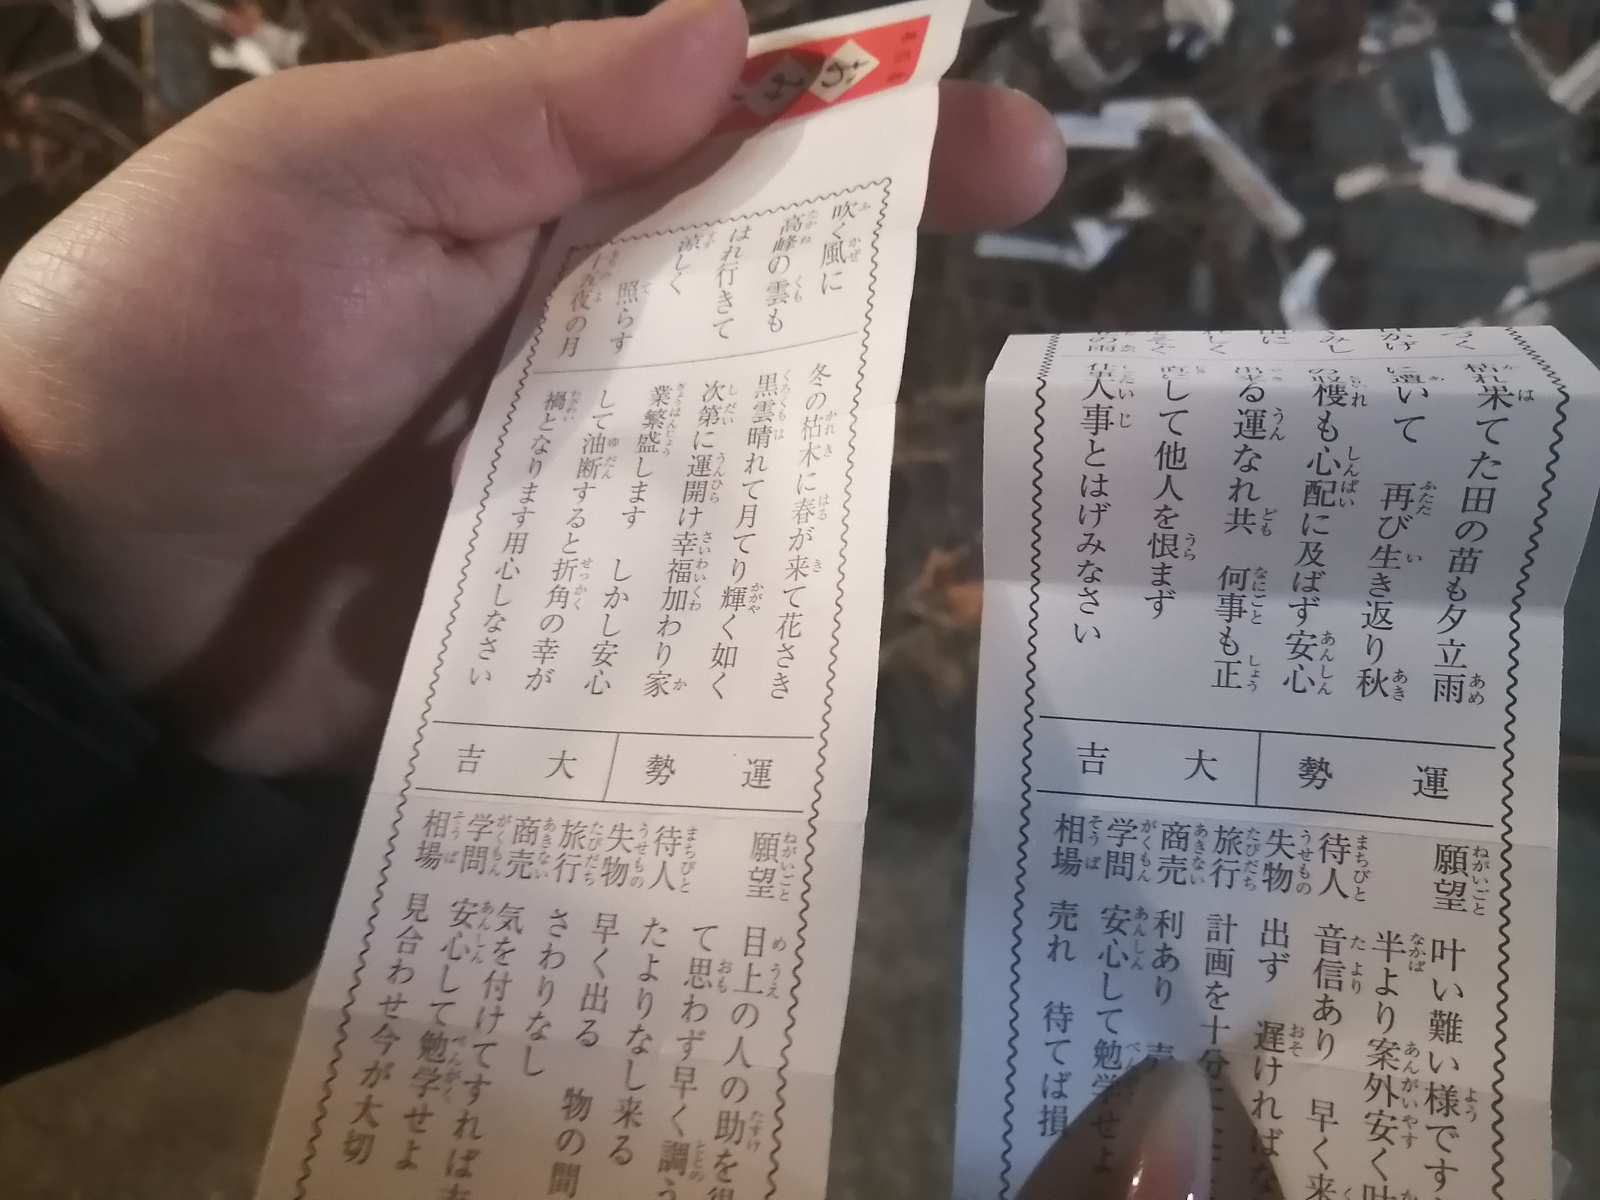 おみ
吹く風に
高峰の雲も
はれ行きて
涼しく
照らす
十五夜の月
冬の枯木に春が来て花さき
黒雲晴れて月てり輝く如く
次第に運開け幸福加わり家
業繁盛します しかし安心
して油断すると折角の幸が
禍となります用心しなさい
運勢 大吉
願望 目上の人の助を得
て思わず早く調う
待人 たよりなし来る
失物 早く出る 物の間
旅行 さわりなし
商売 気を付けてすれば
学問 安心して勉学せよ
相場 見合わせ今が大切
果てた田の苗も夕立雨
に遭いて 再び生き返り秋
の収穫も心配に及ばず安心
る運なれ共 何事も正
直にして他人を恨まず
大事とはげみなさい
運勢 大吉
願望 叶い難い様です
半より案外安く叶
待人 音信あり 早く来
失物 出ず 遅ければ
旅行 計画を十分に
商売 利あり 売
学問 安心して勉学せよ
相場 売れ 待てば損